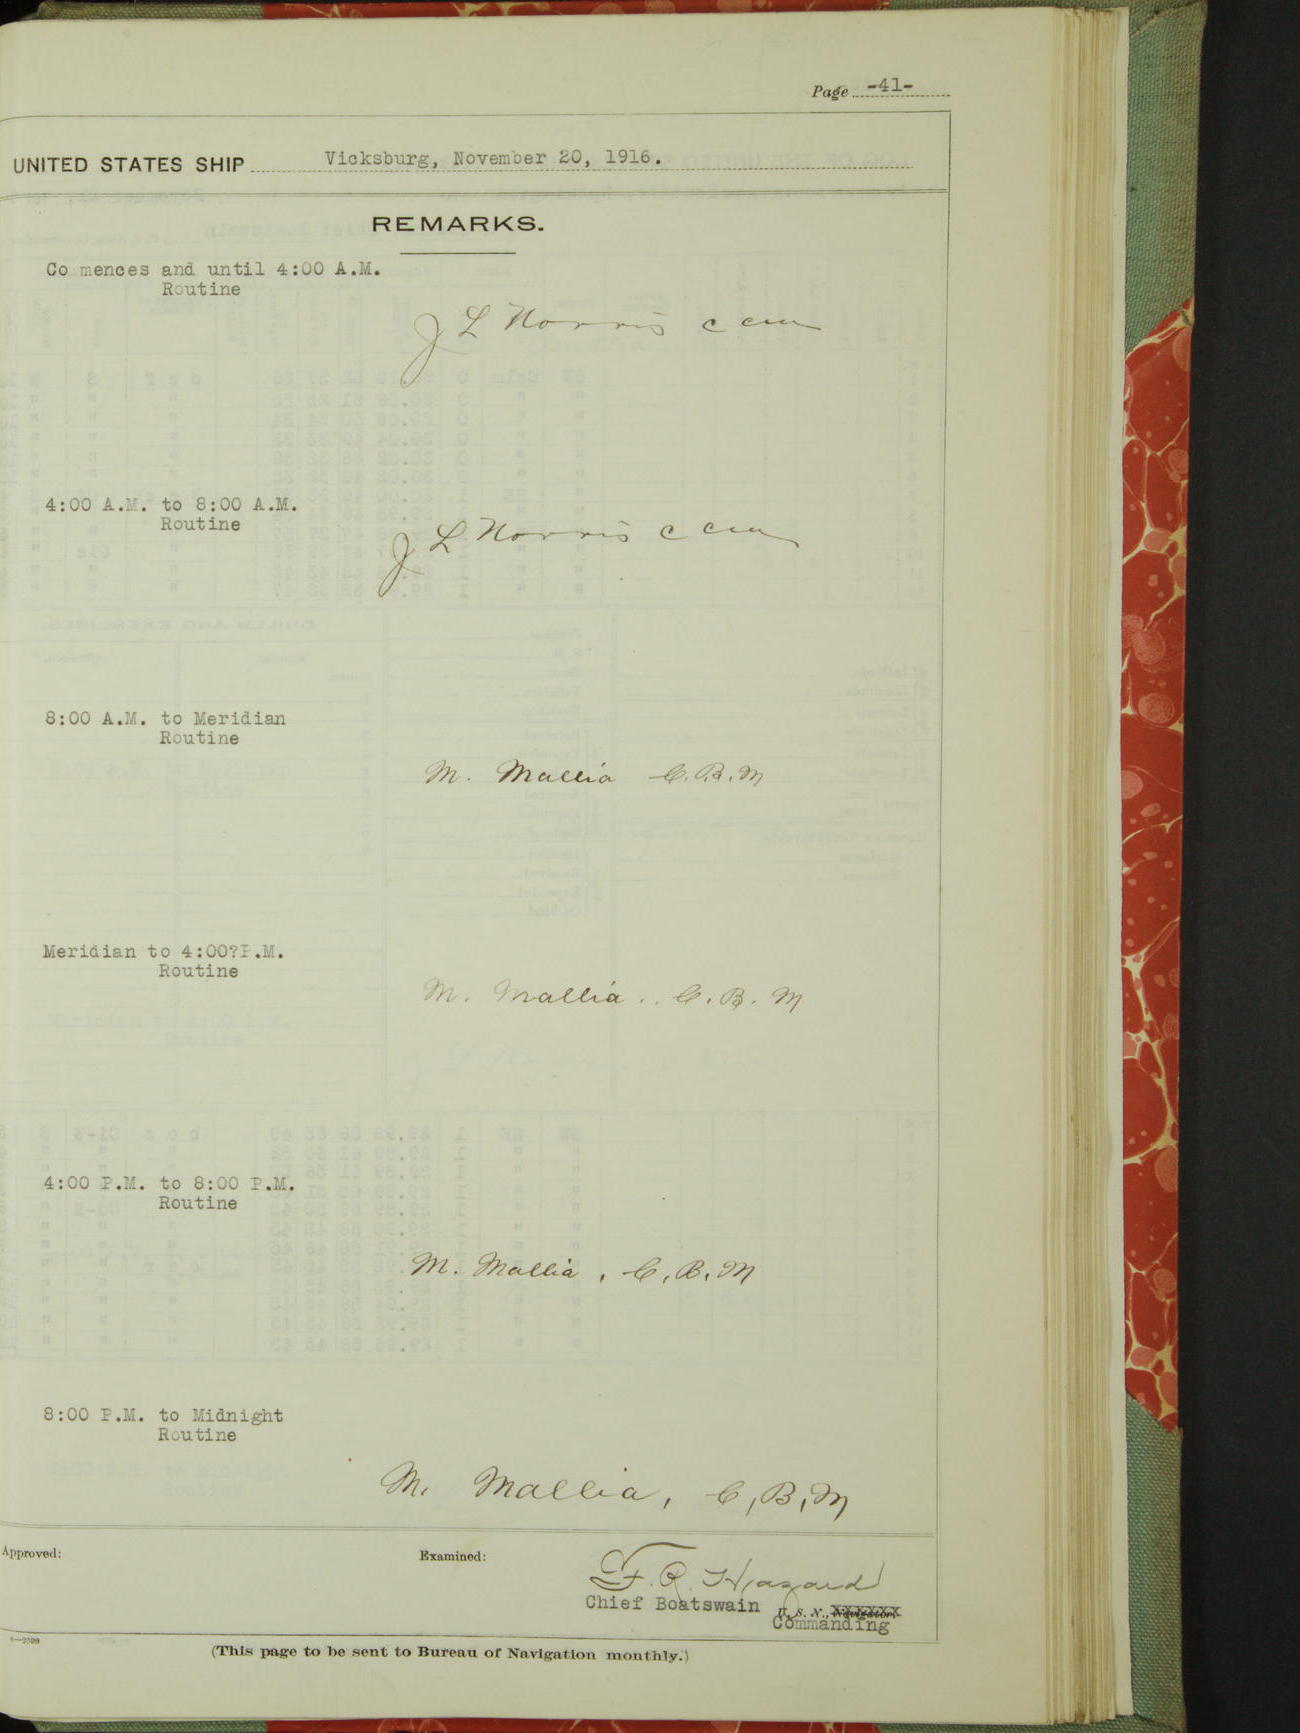 Page -41-
UNITED STATES SHIP Vicksburg, November 20, 1916.
REMARKS.
Co mences and until 4:00 A.M.
Routine
J L Norris c cm
4:00 A.M. to 8:00 A.M.
Routine
J L Norris c cm
8:00 A.M. to Meridian
Routine
M. Mallia C.B.M
Meridian to 4:00?P.M.
Routine
M. Mallia.. C.B.M
4:00 P.M. to 8:00 P.M.
Routine
M. Mallia, C,B,M
8:00 P.M. to Midnight
Routine
M. Mallia, C,B,M
Approved:
Examined:
F. R. Hazard
Chief Boatswain U. S. N., Navigator.
Commanding
(This page to be sent to Bureau of Navigation monthly.)